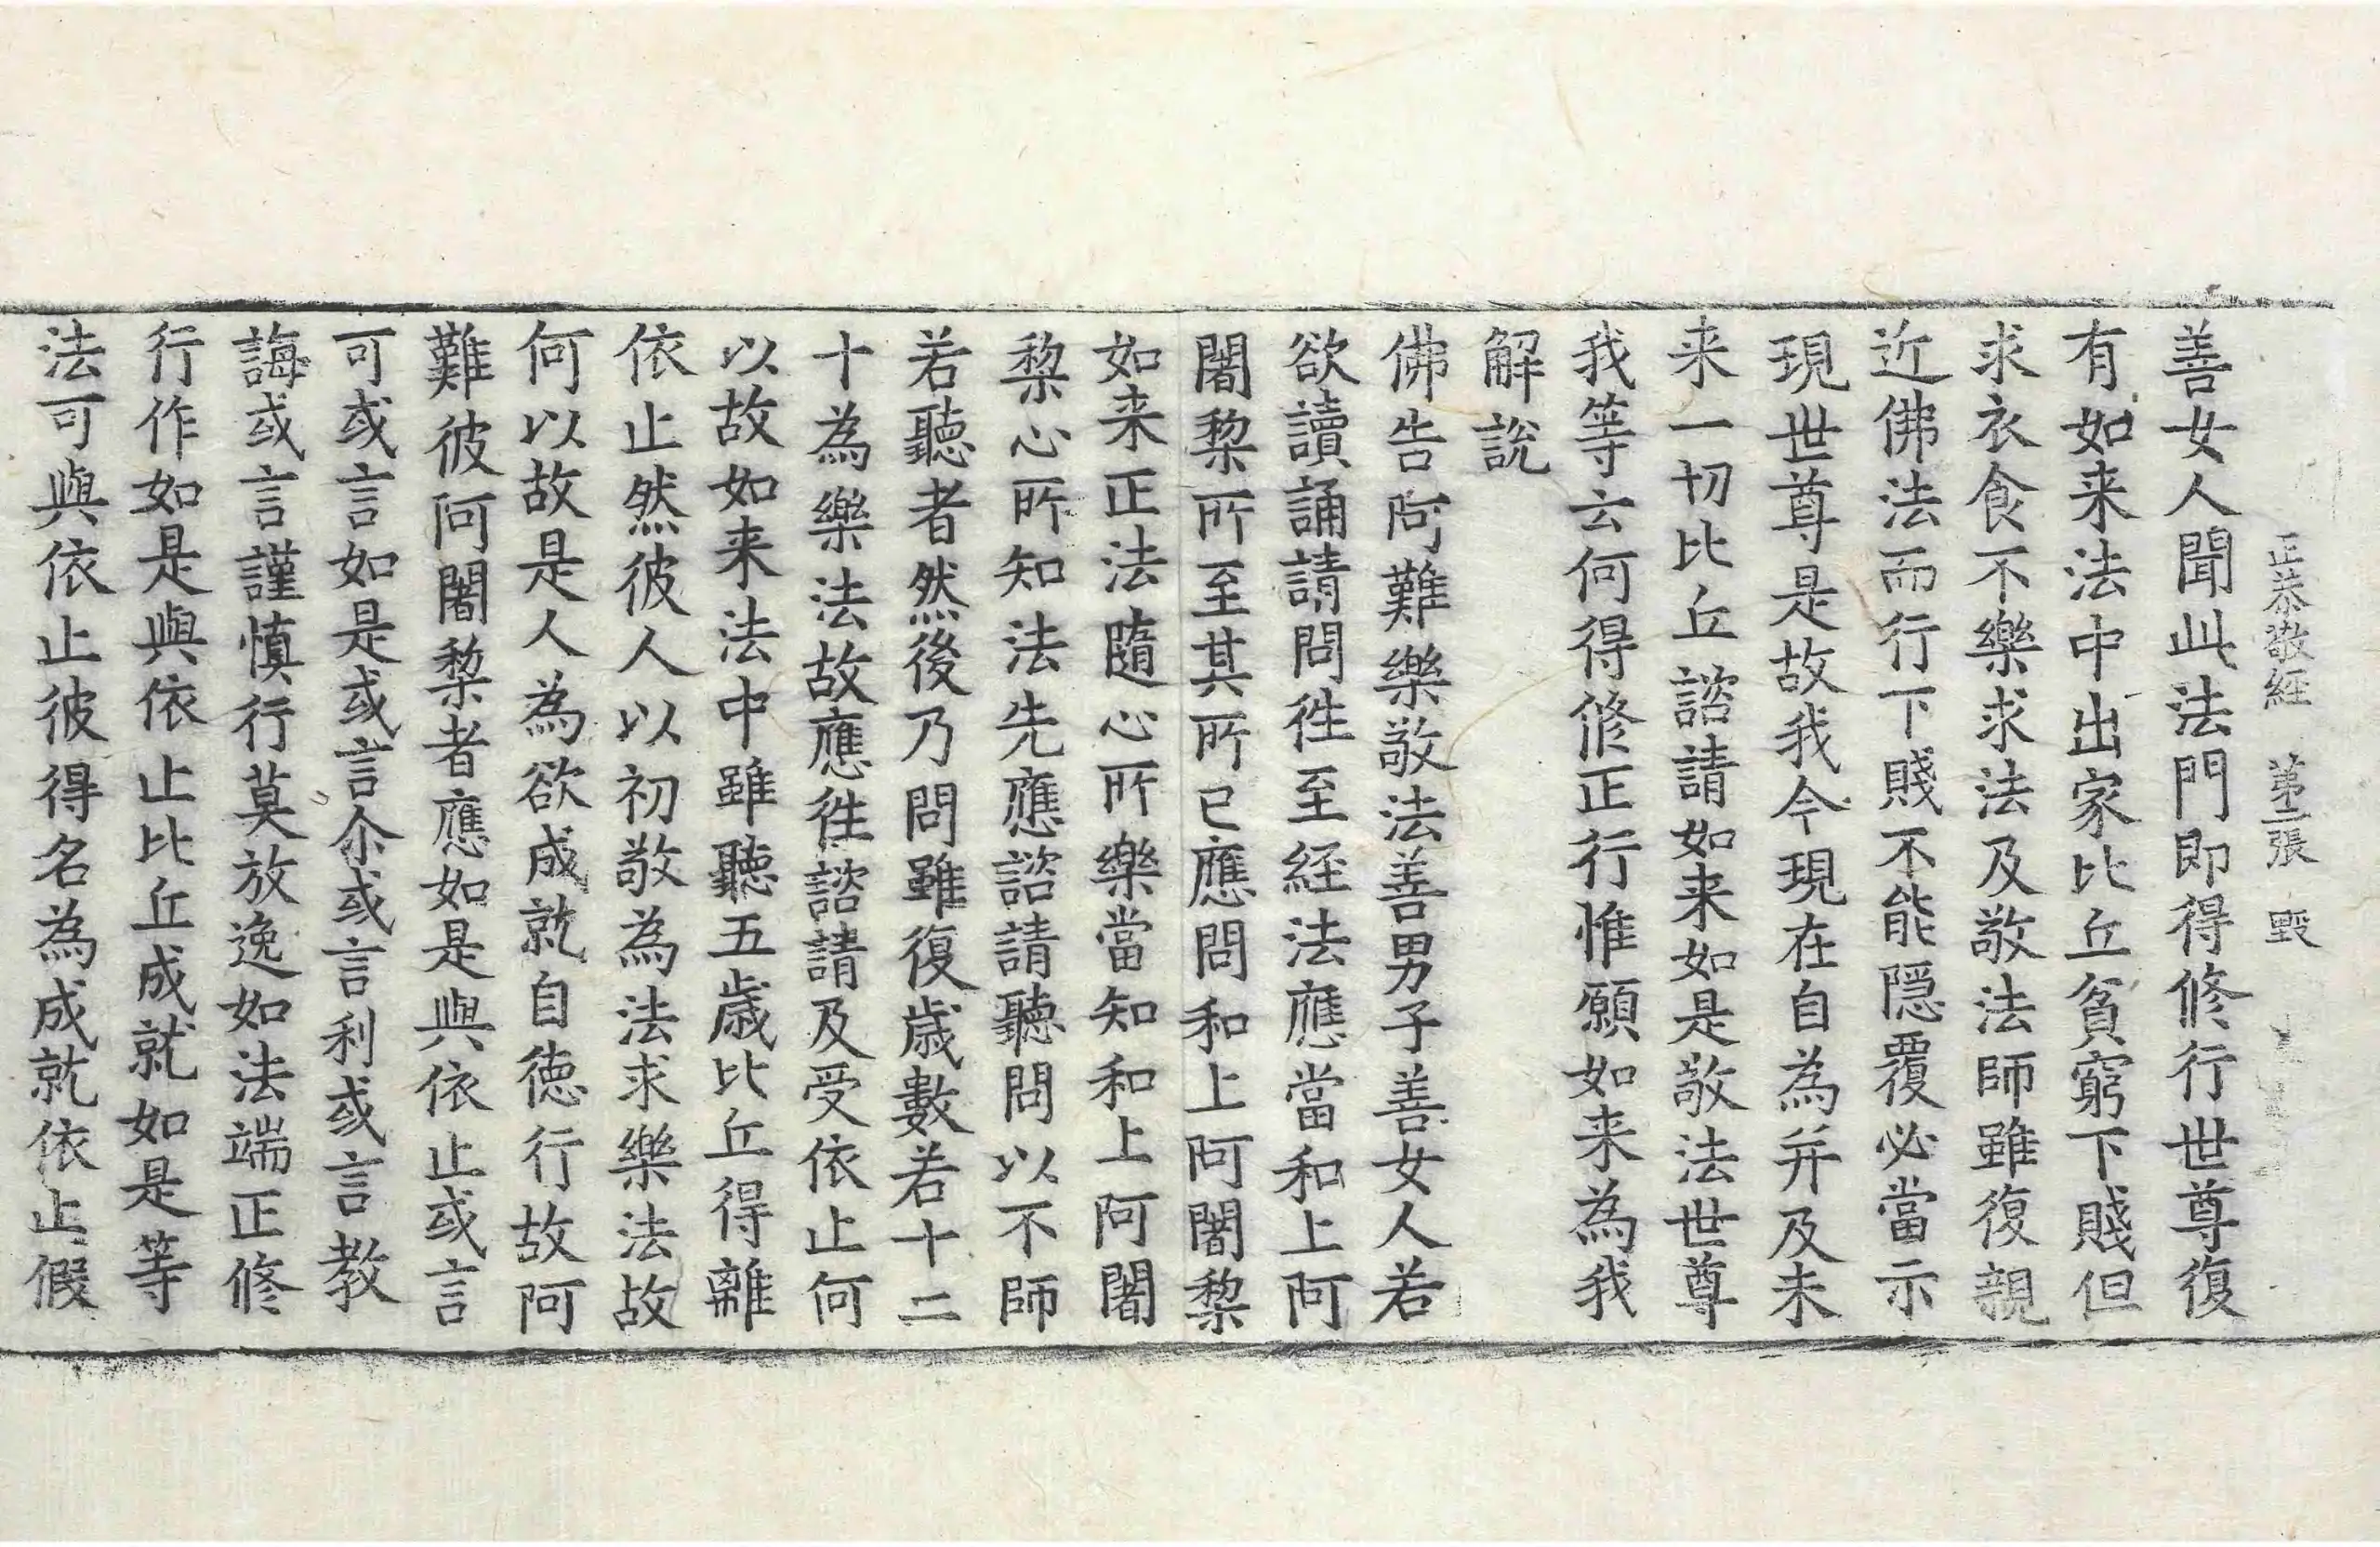 正恭敬經 第二張 毀
善女人聞此法門即得修行世尊復
有如来法中出家比丘貧窮下賤但
求衣食不樂求法及敬法師雖復親
近佛法而行下賤不能隠覆必當示
現世尊是故我今現在自為并及未
来一切比丘諮請如来如是敬法世尊
我等云何得修正行惟願如来為我
解說
佛告阿難樂敬法善男子善女人若
欲讀誦請問徃至経法應當和上阿
闍棃所至其所已應問和上阿闍棃
如来正法隨心所樂當知和上阿闍
棃心所知法先應諮請聽問以不師
若聽者然後乃問雖復歳數若十二
十為樂法故應徃諮請及受依止何
以故如来法中雖聽五歳比丘得離
依止然彼人以初敬為法求樂法故
何以故是人為欲成就自徳行故阿
難彼阿闍棃者應如是與依止或言
可或言如是或言尒或言利或言教
誨或言謹慎行莫放逸如法端正修
行作如是與依止比丘成就如是等
法可與依止彼得名為成就依止假